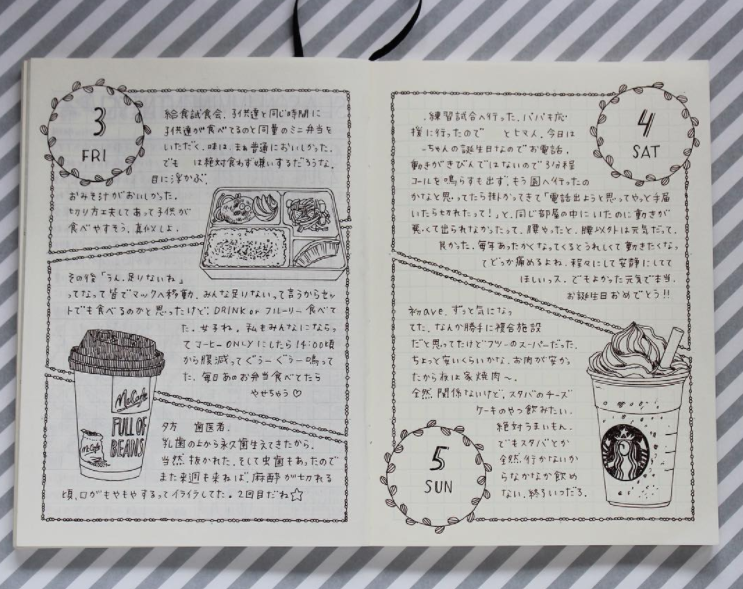 3
FRI
給食試食会。子供達と同じ時間に
子供達が食べてるのと同量のミニ弁当を
いただく。味は、まぁ普通においしかった。
でも は絶対食わず嫌いするだろうな。
目に浮かぶ。
おみそ汁がおいしかった。
切り方工夫してあって子供が
食べやすそう。真似しよ。
その後「うん、足りないね」
ってなって皆でマックへ移動。みんな足りないって言うからセッ
トでも食べるのかと思ったけど、DRINK or フルーリー食べて
た。女子ね。私もみんなにならっ
てコーヒーONLYにしたら14:00頃
から腹減ってぐぅーぐぅー鳴って
た。毎日あのお弁当食べてたら
やせちゃう♡
McCafé
FULL OF
BEANS
夕方 歯医者。
乳歯の上から永久歯生えてきたから、
当然抜かれた。そして虫歯もあったので
また来週も来ねば。麻酔が切れる
頃、口がもやもやするってイライラしてた。2回目だね☆
4
SAT
練習試合へ行った。パパも応
援に行ったので とヒマ人。今日は
ーちゃんの誕生日なのでお電話。
動きがきびんではないので3分程
コールを鳴らすも出ず。もう園へ行ったの
かなと思ってたら掛かってきて「電話出ようと思ってやっと手届
いたら切れたって!」と。同じ部屋の中にいたのに動きが
悪くて出られなかったって。腰かったと。腰以外は元気だって。
良かった。毎年あったかくなってくるとうれしくて動きたくなっ
てどっか痛めるよね。程々にして安静にしてて
ほしいっス。でもよかった元気で本当。
お誕生日おめでとう!!
初ave。ずっと気になっ
てた。なんか勝手に複合施設
だと思ってたけどフツーのスーパーだった。
ちょっと安いくらいかな。お肉が安か
ったから夜は家焼肉〜。
全然関係ないけど、スタバのチーズ
ケーキのやつ飲みたい。
絶対うまいもん。
でもスタバとか
全然行かないか
らなかなか飲め
ない。終るいつだろ。
5
SUN